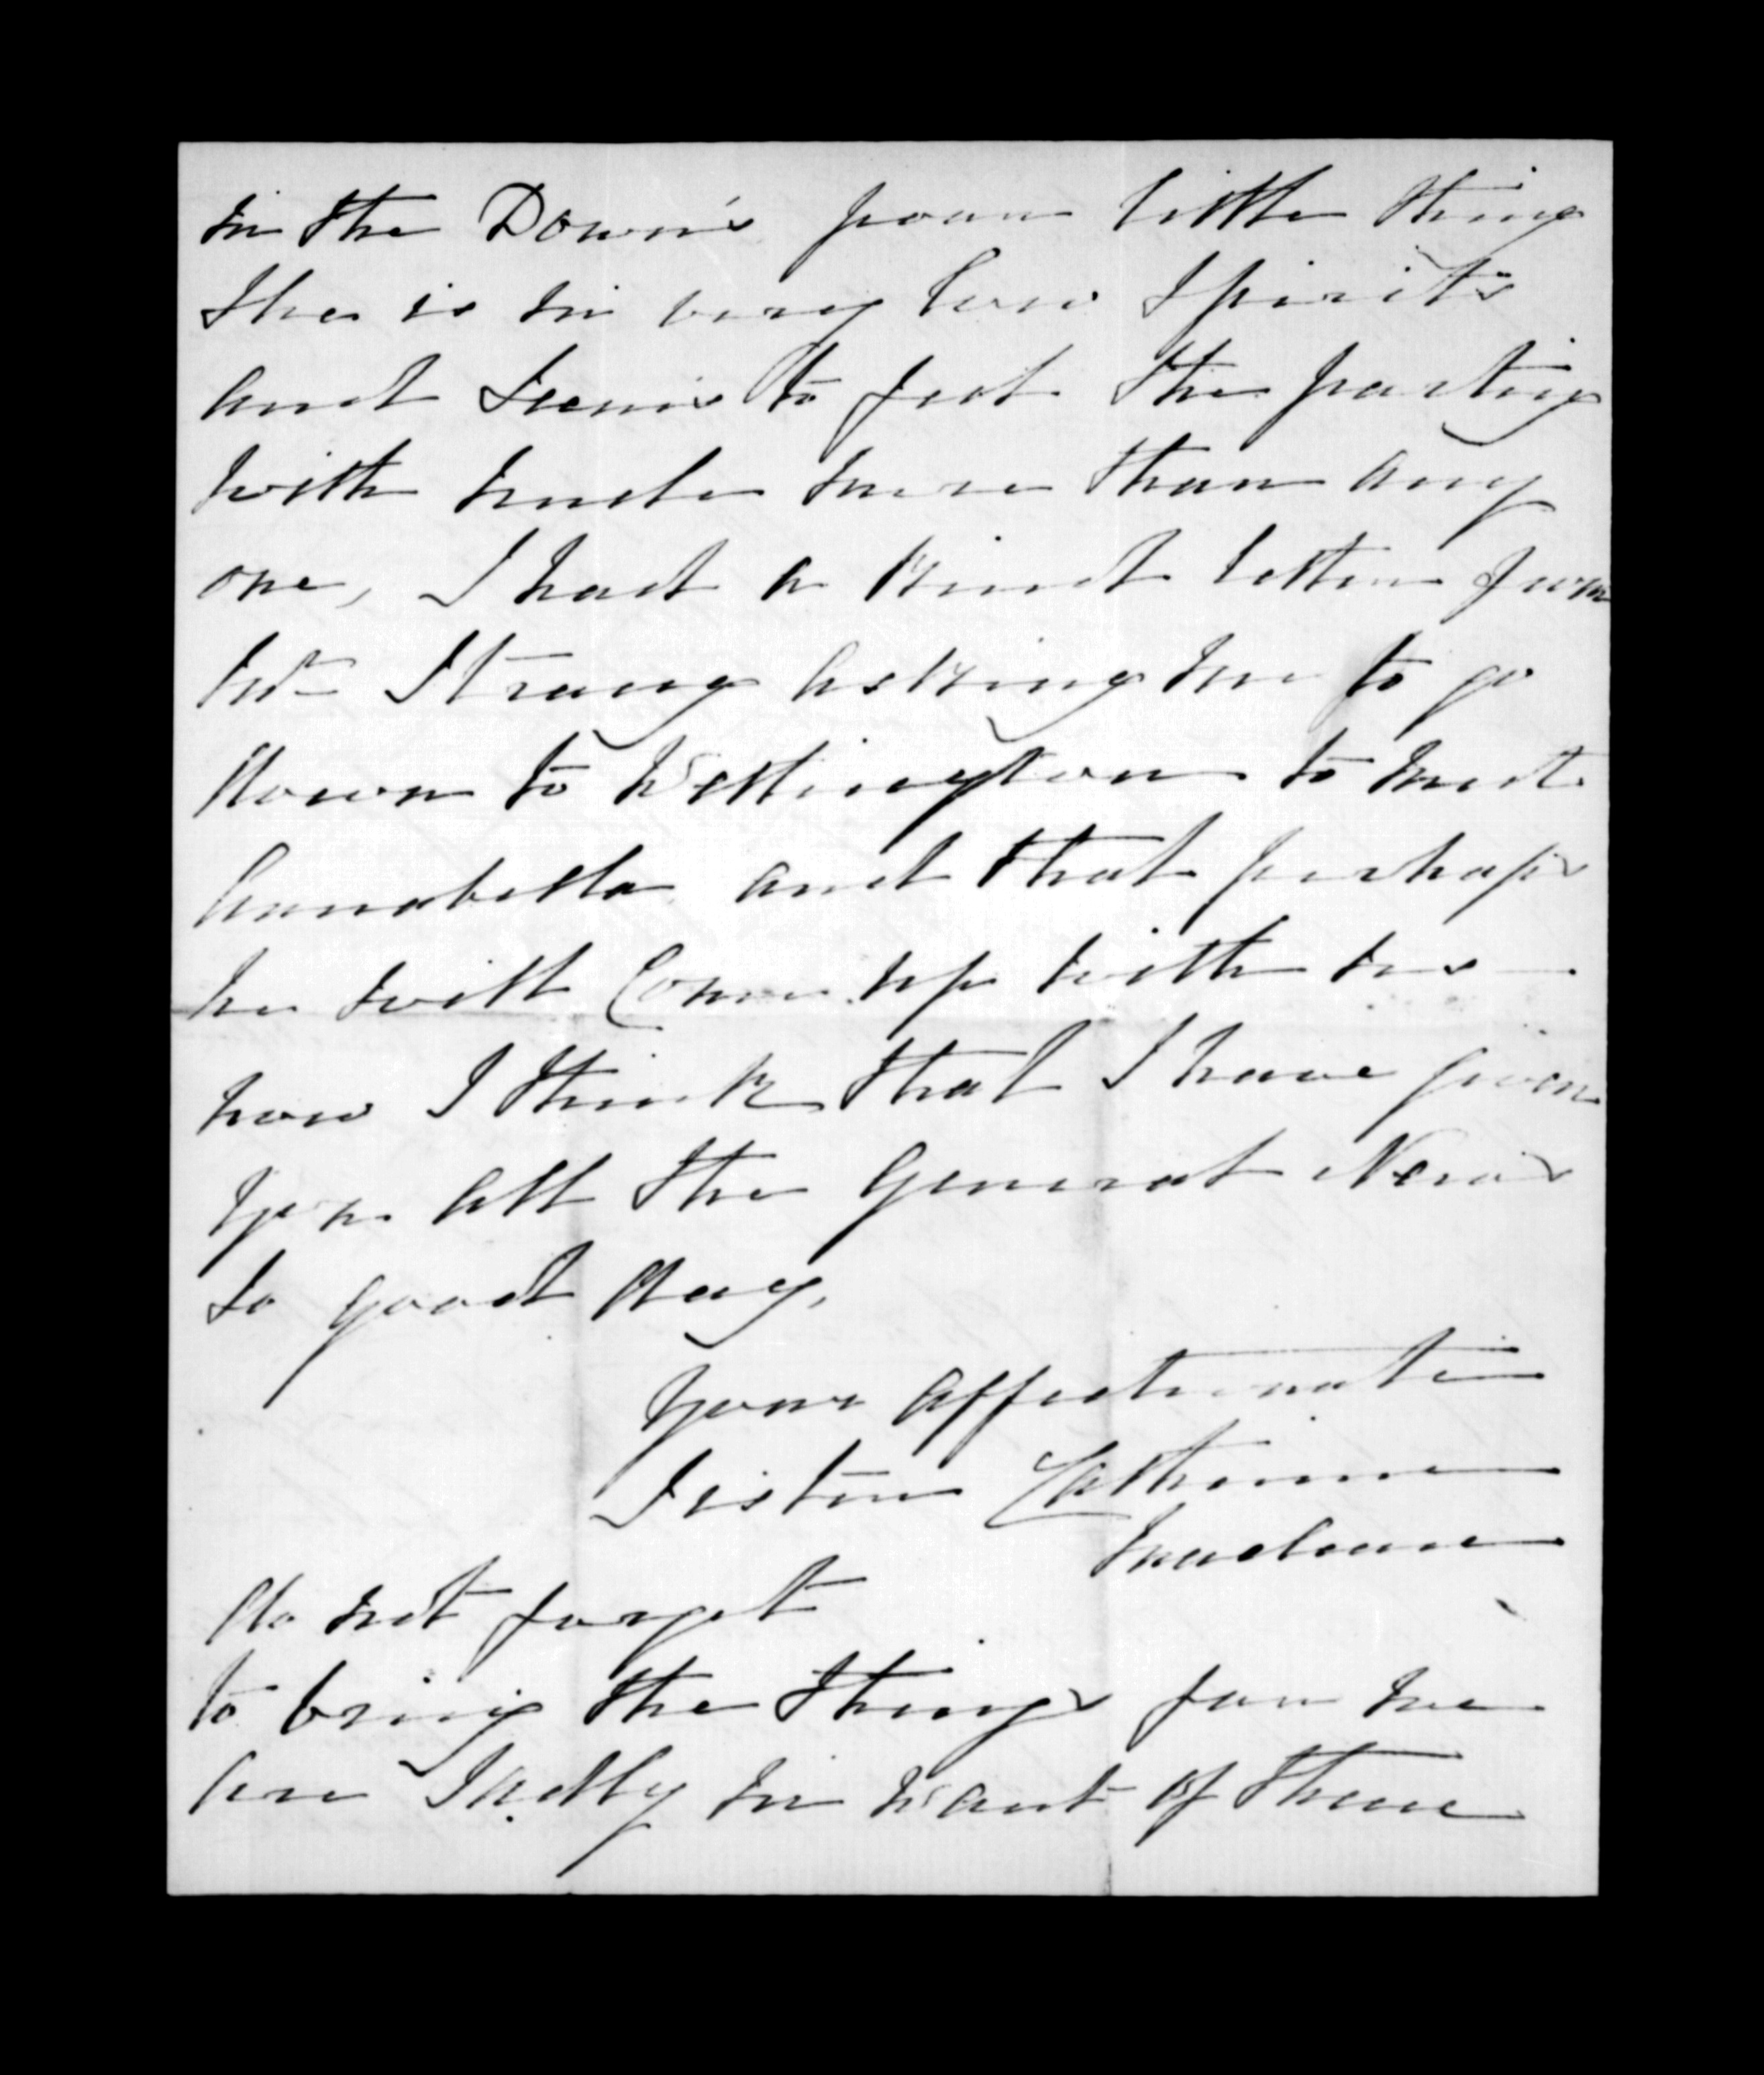 in the Down's poor little thing
She is in very low Spirits
and Seems to feel the parting
with Uncle more than any
one, I had a kind letter from
Mr Strang asking me to go
down to Wellington to meet
Annabella and that perhaps
he will Come up with us —
now I think that I have given
you all the General News
so good day,
Your affectionate
Sister Catherine
McLean
do not forget
to bring the things for we
are Sadly in want of them